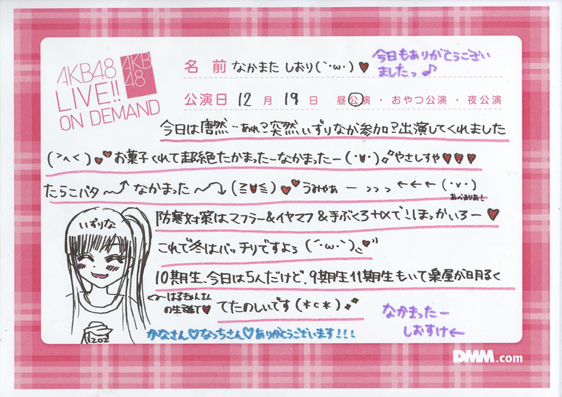 AKB48
LIVE!!
ON DEMAND
AKB
48
名前 なかまた しおり(`･ω･´)♥
今日もありがとうござい
ましたっ♪
公演日 12月19日 昼公演・おやつ公演・夜公演
今日は唐然…あれ?突然、いずりなが参加?出演してくれました
(>へ<)♥♥お菓子くれて超絶たかまったーなかまったー(･∀･)♪やさしすや♥♥♥
たらこパターなかまった〜(≧∀≦)♥♥うみゃぁーっっっ←←←(･v･)
防寒対策はマフラー&イヤマフ&手ぶくろ+αで!ほっかいろー♥
これで冬はバッチリですよぅ(´･ω･`)
10期生、今日は5人だけど、9期生11期生もいて楽屋が明るく
てたのしいです(*c*)♪
いずりな
の生誕T♥
かなさん♡なっちさん♡ありがとうございます!!!
なかまったー
しおすけ←
DMM.com